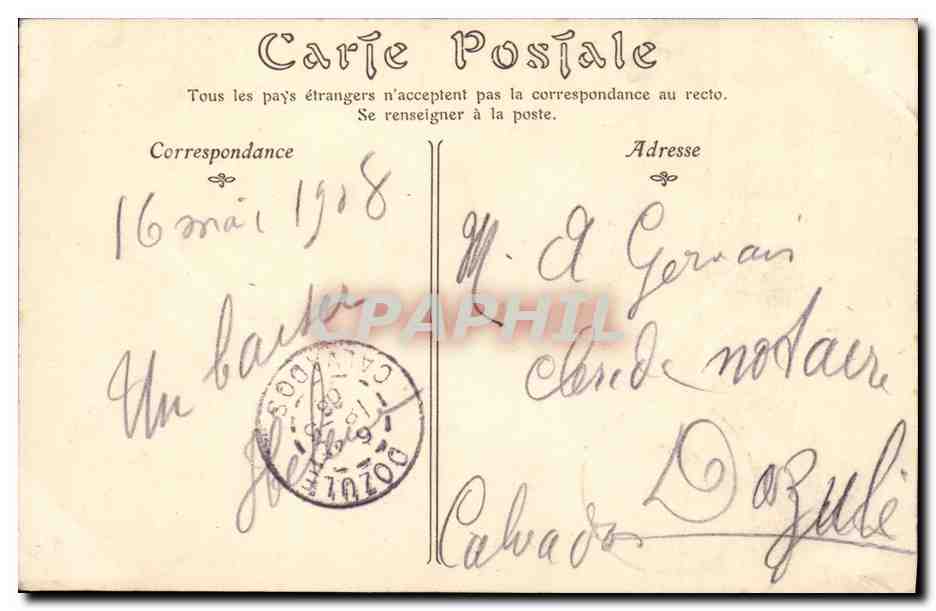 Carte Postale
Tous les pays étrangers n'acceptent pas la correspondance au recto.
Se renseigner à la poste.
Correspondance
16 mai 1908
Un
Adresse
M. A Gervais
clerc de notaire
Dozulé
Calvados
CPAPHIL
DOZULÉ
CALVADOS